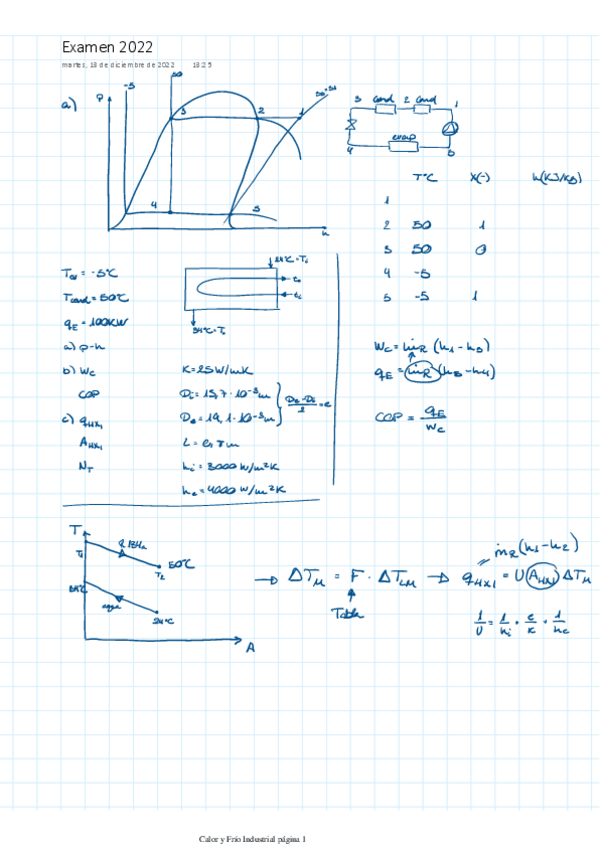 Examen 2022
martes, 13 de diciembre de 2022 13:25
a)
P
-5
50
3
2
1
4
5
h
3 cond 2 cond 1
4 evap 5
T°C X(-) h(KJ/KG)
1
2 50 1
3 50 0
4 -5
5 -5 1
= -5°C
Tcond = 50°C
qE = 100KW
a) p-h
b) Wc
COP
c) qHX1
AHX1
NT
K = 25W/mK
Di = 15,7 · 10⁻³m
De = 19,1 · 10⁻³m
De - Di / 2 = e
hi = 3000 W/m²K
he = 4000 W/m²K
Wc = ṁR (h1 - h5)
qE = ṁR (h5 - h4)
COP = qE / Wc
T
T1
50°C
T2
agua
24°C
A
→ ΔTM = F · ΔTLM → qHX1 = U AHX1 ΔTM
ṁR (h1 - h2)
Tabla
1/U = 1/hi + e/K + 1/he
Calor y Frío Industrial página 1